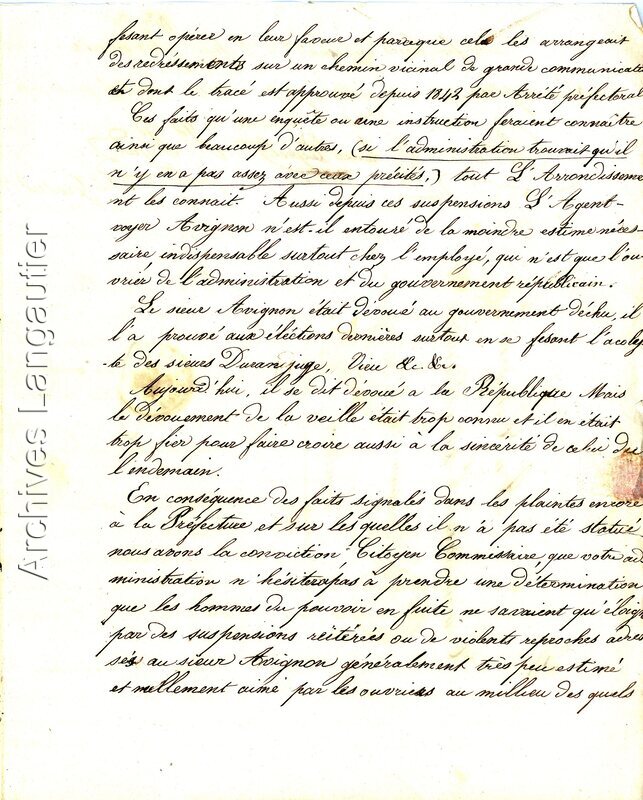 fesant opérer en leur faveur et parceque cela les arrangeait
des redressements sur un chemin vicinal de grande communicatio
et dont le tracé est approuvé depuis 1842 par Arrêté préfectoral
Ces faits qu'une enquête ou une instruction feraient connaître
ainsi que beaucoup d'autres, (si l'administration trouvait qu'il
n'y en a pas assez avec ceux précités,) tout L'Arrondisseme
nt les connait. Aussi depuis ces suspensions L'Agent-
voyer Avignon n'est-il entouré de la moindre estime néces-
saire indispensable surtout chez l'employé, qui n'est que l'ou-
vrier de l'administration et du gouvernement républicain.
Le sieur Avignon était dévoué au gouvernement déchu, il
l'a prouvé aux éléctions dernières surtout en se fesant l'acoly
-te des sieurs Duran juge, Vieu &c. &c.
Aujourd'hui, il se dit dévoué a la République Mais
le dévouement de la veille était trop connu et il en était
trop fier pour faire croire aussi à la sincérité de celui du
lendemain.
En conséquence des faits signalés dans les plaintes encore
à la Préfecture et sur les quelles il n'a pas été statué
nous avons la conviction, Citoyen Commissaire, que votre ad
ministration n'hésitera pas à prendre une détermination
que les hommes du pouvoir en fuite ne savaient qu'éloign
par des suspensions réitérées ou de violents reproches adres
sés au sieur Avignon généralement très peu estimé
et nullement aimé par les ouvriers au millieu des quels
Archives Langautier